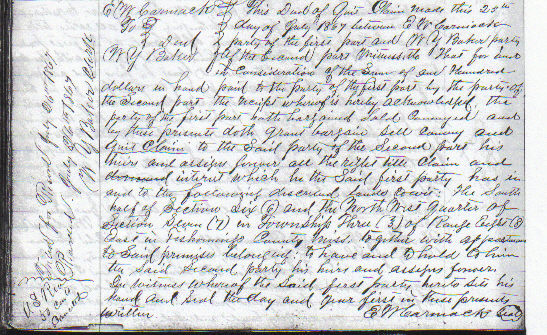 E W Carmack } This Deed of Quit Claim made this 25th
To } day of July 1867 between E W Carmack
Deed } party of the first part and W Y Baker party
W Y Baker } of the Second part Witnesseth That for and
in Consideration of the Sum of one Hundred
dollars in hand paid to the party of the first part by the party of
the Second part the receipt whereof is hereby acknowledged, the
party of the first part hath bargained Sold Conveyed and
by these presents doth grant bargain Sell Convey and
Quit Claim to the Said party of the Second part his
heirs and assigns forever all the right title Claim and
demand interest which he the Said first party has in
and to the following described lands towit: The South
half of Section Six (6) and the North West quarter of
Section Seven (7) in Township Three (3) of Range Eight (8)
East in Tishomingo County Miss. together with
to Said premises belonging; to have and to hold to him
the Said Second party his heirs and assigns forever.
In Witness whereof the Said first party herto sets his
hand and Seal the day and year first in these presents
written
E W Carmack (Seal)
Filed for Record July 1867
Recorded July 1867
W Y Baker Clerk
U.S. Rev
50 Cents